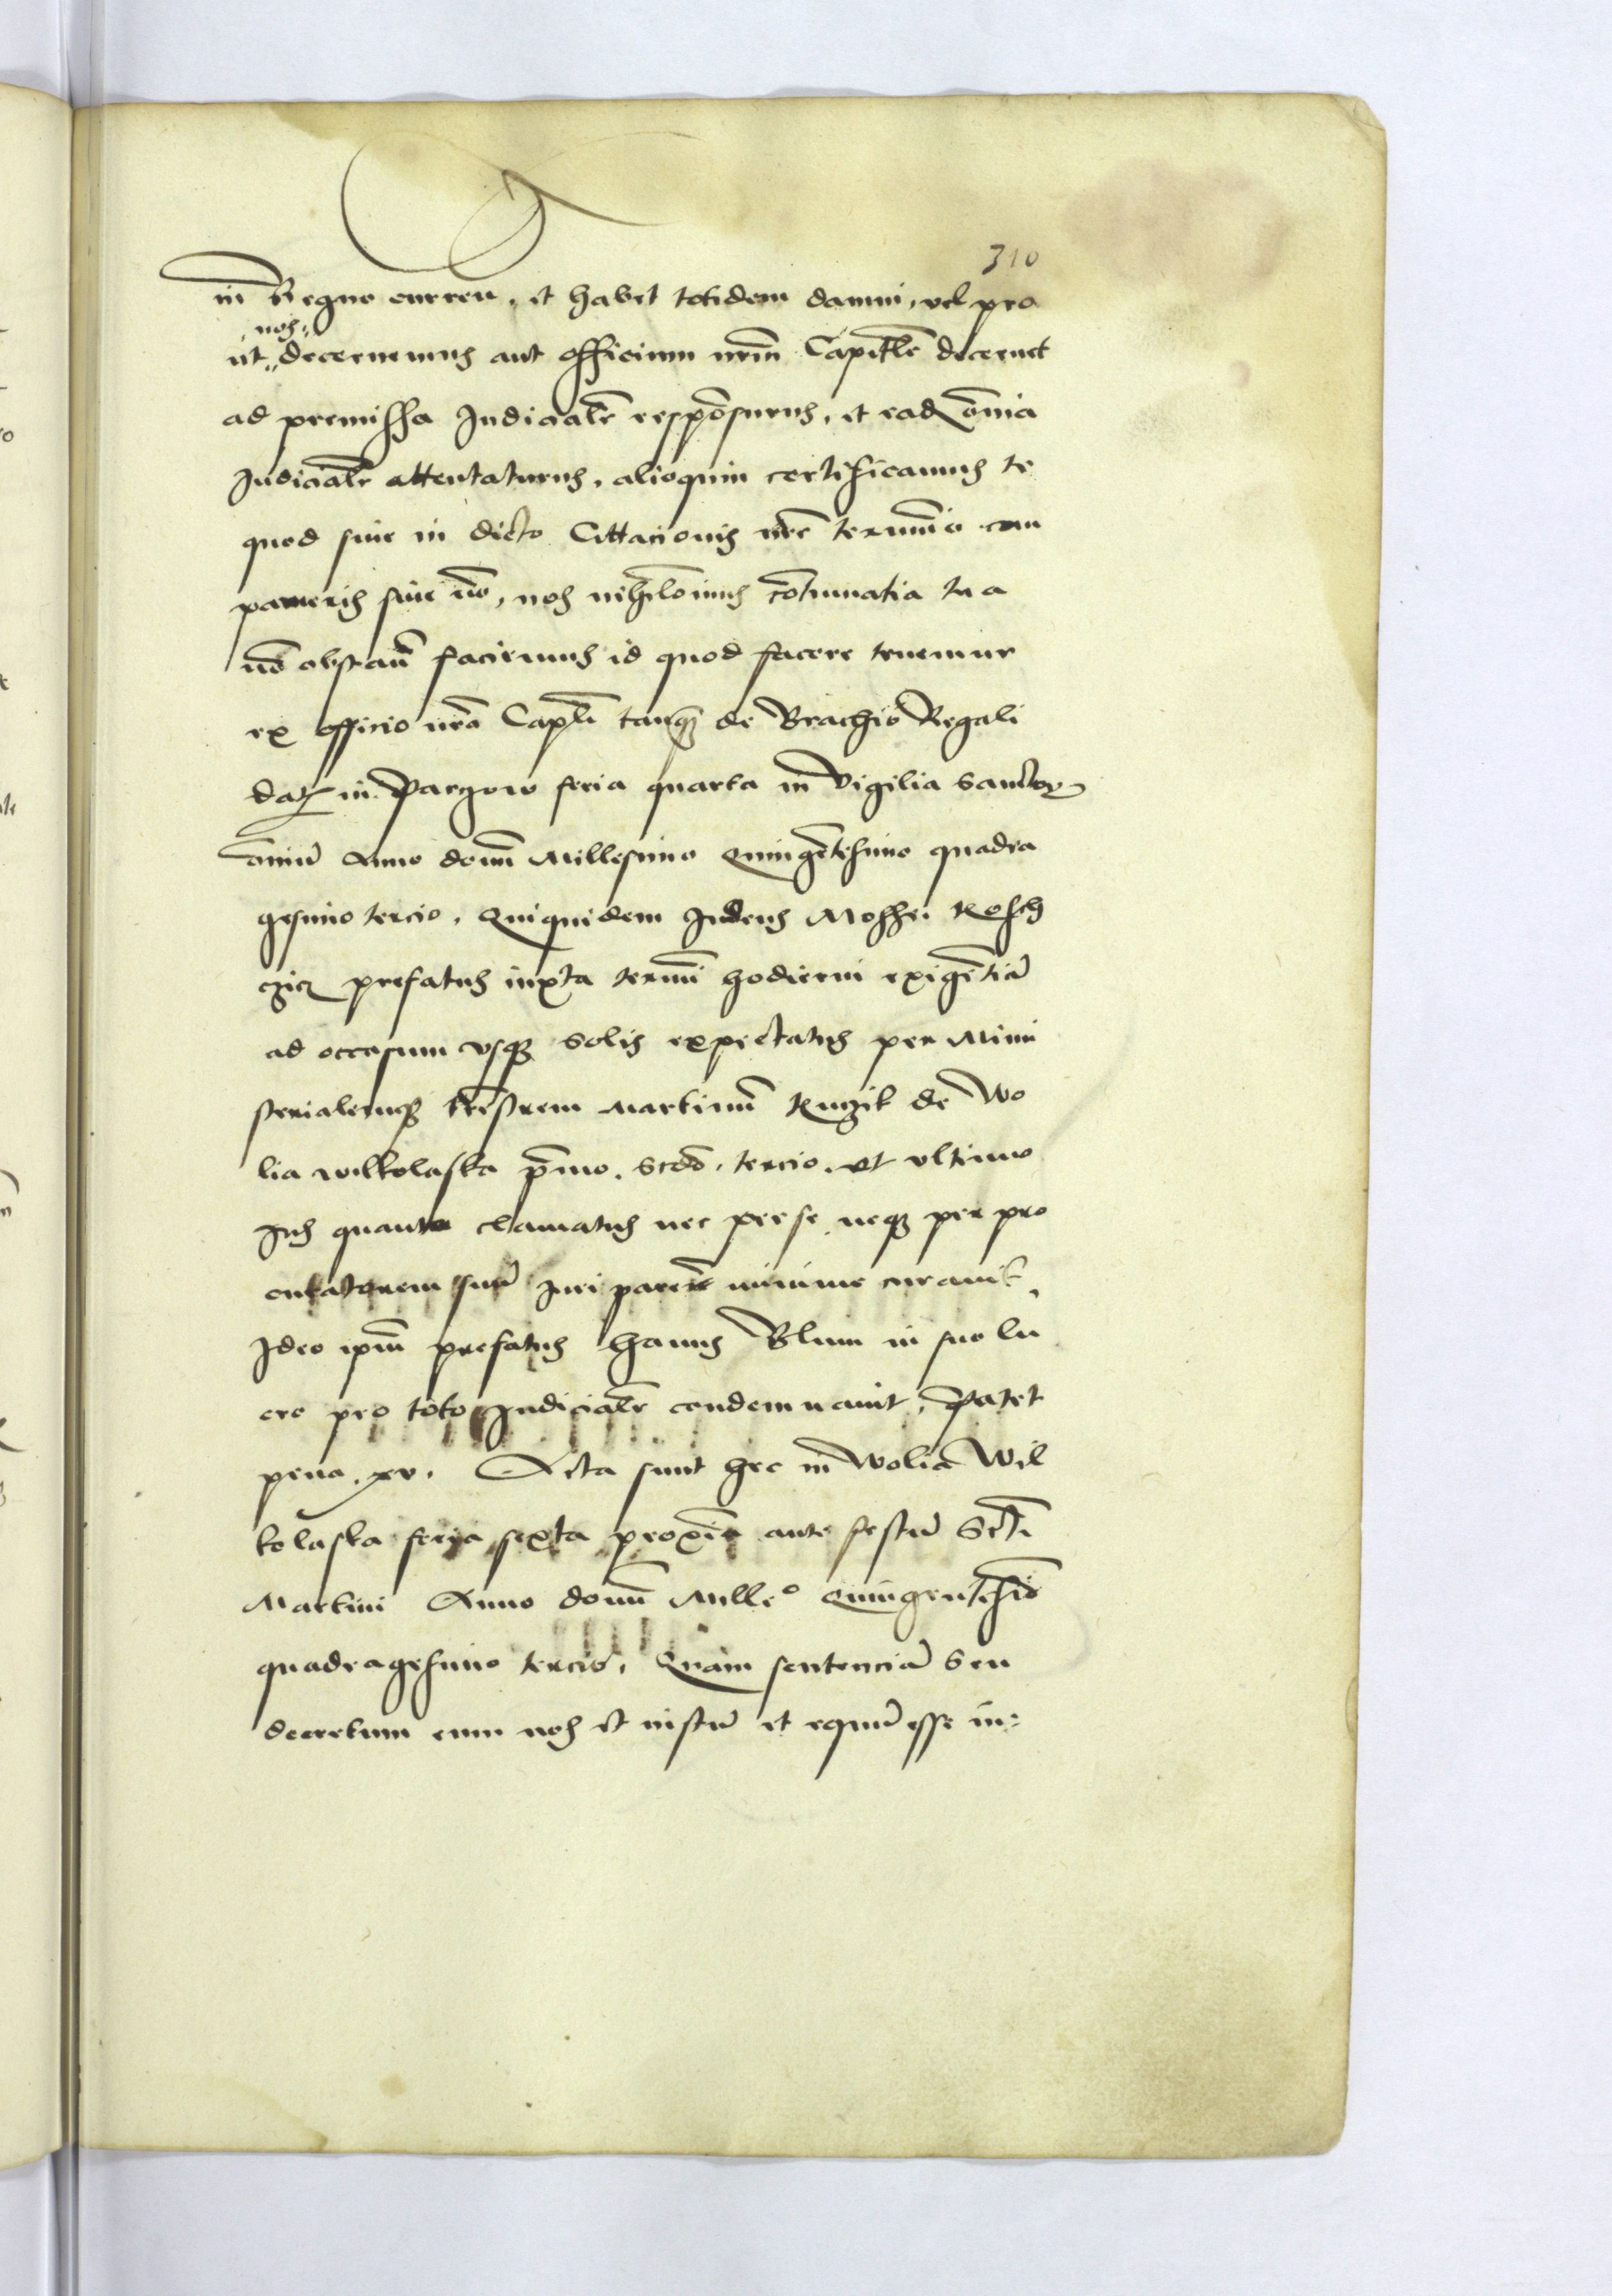 310
in Regno curren, et habet totidem damni, vel pro
nos
ut decernemus aut officium nrm̄ Capitłe decernet
ad premissa Judicialr̄ respōsurus, et ead ōmia
Judicialr̄ attentaturus, alioquin certificamus te
quod siue in dicto Cittacionis nrē termino com
parueris siue nō, nos nihilōminus cōtumatia tua
nō obstan̄ faciemus id quod facere tenemur
ex officio nrō Capłi tanq̄ de Brachio Regali
dat in Parzow feria quarta in Vigilia Sanctor
ōmiū Anno domī Millesimo Quingētesimo quadra
gesimo tercio. Quiquidem Judeus Moszei Rosch
czicz prefatus iuxta termī hodierni exigētiā
ad occasum vsq Solis expectatus per Mini
sterialemq tr̄estrem Martinū Kuzik de Wo
lia wilkolaska p̄mo. Scdō. tercio. et vltimo
Jus quarto clamatus nec per se neq per pro
curatorem suū Juri parere minime curauit.
Ideo ipm̄ prefatus Hanus Blum in suo lu
cro pro toto Judicialr̄ condemnauit. Patet
pena xv. Acta sunt hec in Wolia Wil
kolaska feria sexta proxīa ante festū Scti
Martini Anno domī Mille° Quingentesiō
quadragesimo tercio. Quam sentenciā Seu
decretum cum nos et iustū et equū esse in: